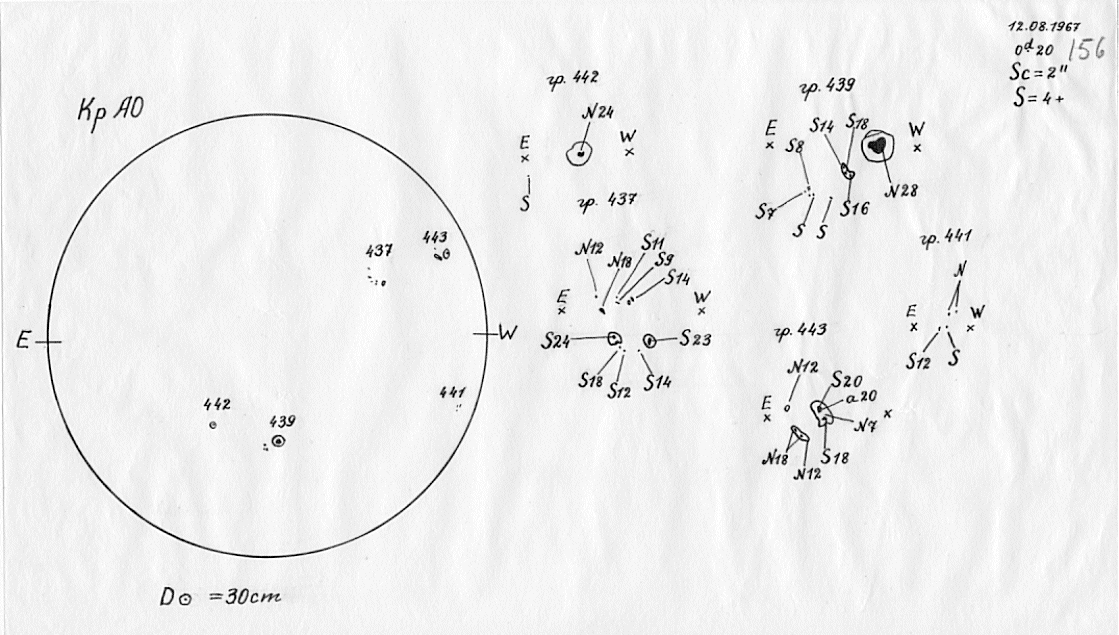 12.08.1967
0ᵈ.20
156
Sc = 2"
S = 4+
Кр АО
E
W
437
443
442
439
441
D⊙ = 30cm
гр. 442
N24
E
W
S
гр. 437
N12
N18
S11
S9
S14
E
W
S24
S23
S18
S12
S14
гр. 439
E
W
S14
S18
S8
S7
S
S
S16
N28
гр. 441
N
E
W
S12
S
гр. 443
N12
S20
a20
E
N7
N18
N12
S18